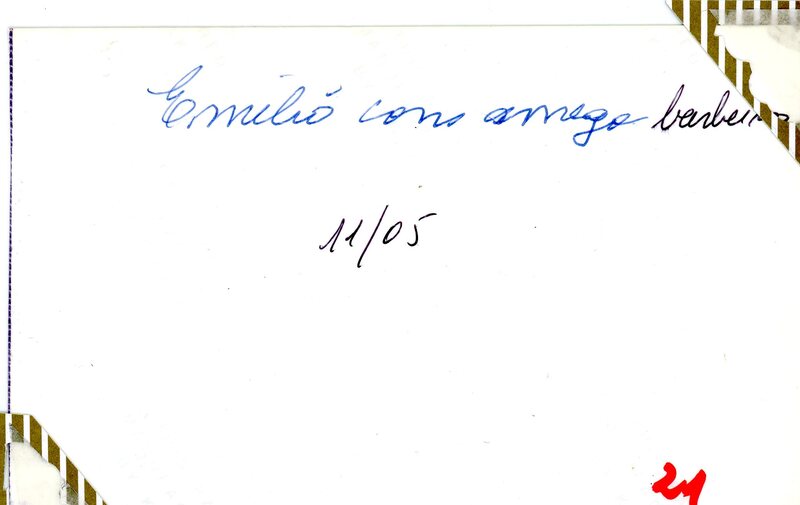 Emilio com amigo barbeiro
11/05
21